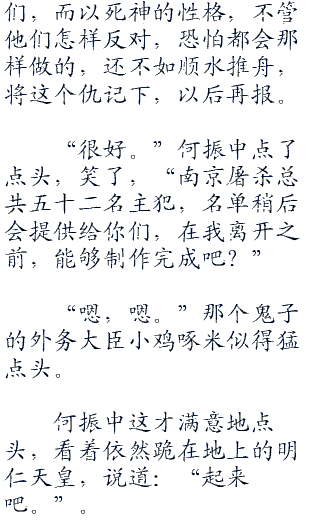 们，而以死神的性格，不管
他们怎样反对，恐怕都会那
样做的，还不如顺水推舟，
将这个仇记下，以后再报。
“很好。”何振中点了
点头，笑了，“南京屠杀总
共五十二名主犯，名单稍后
会提供给你们，在我离开之
前，能够制作完成吧？”
“嗯，嗯。”那个鬼子
的外务大臣小鸡啄米似得猛
点头。
何振中这才满意地点
头，看着依然跪在地上的明
仁天皇，说道：“起来
吧。”。